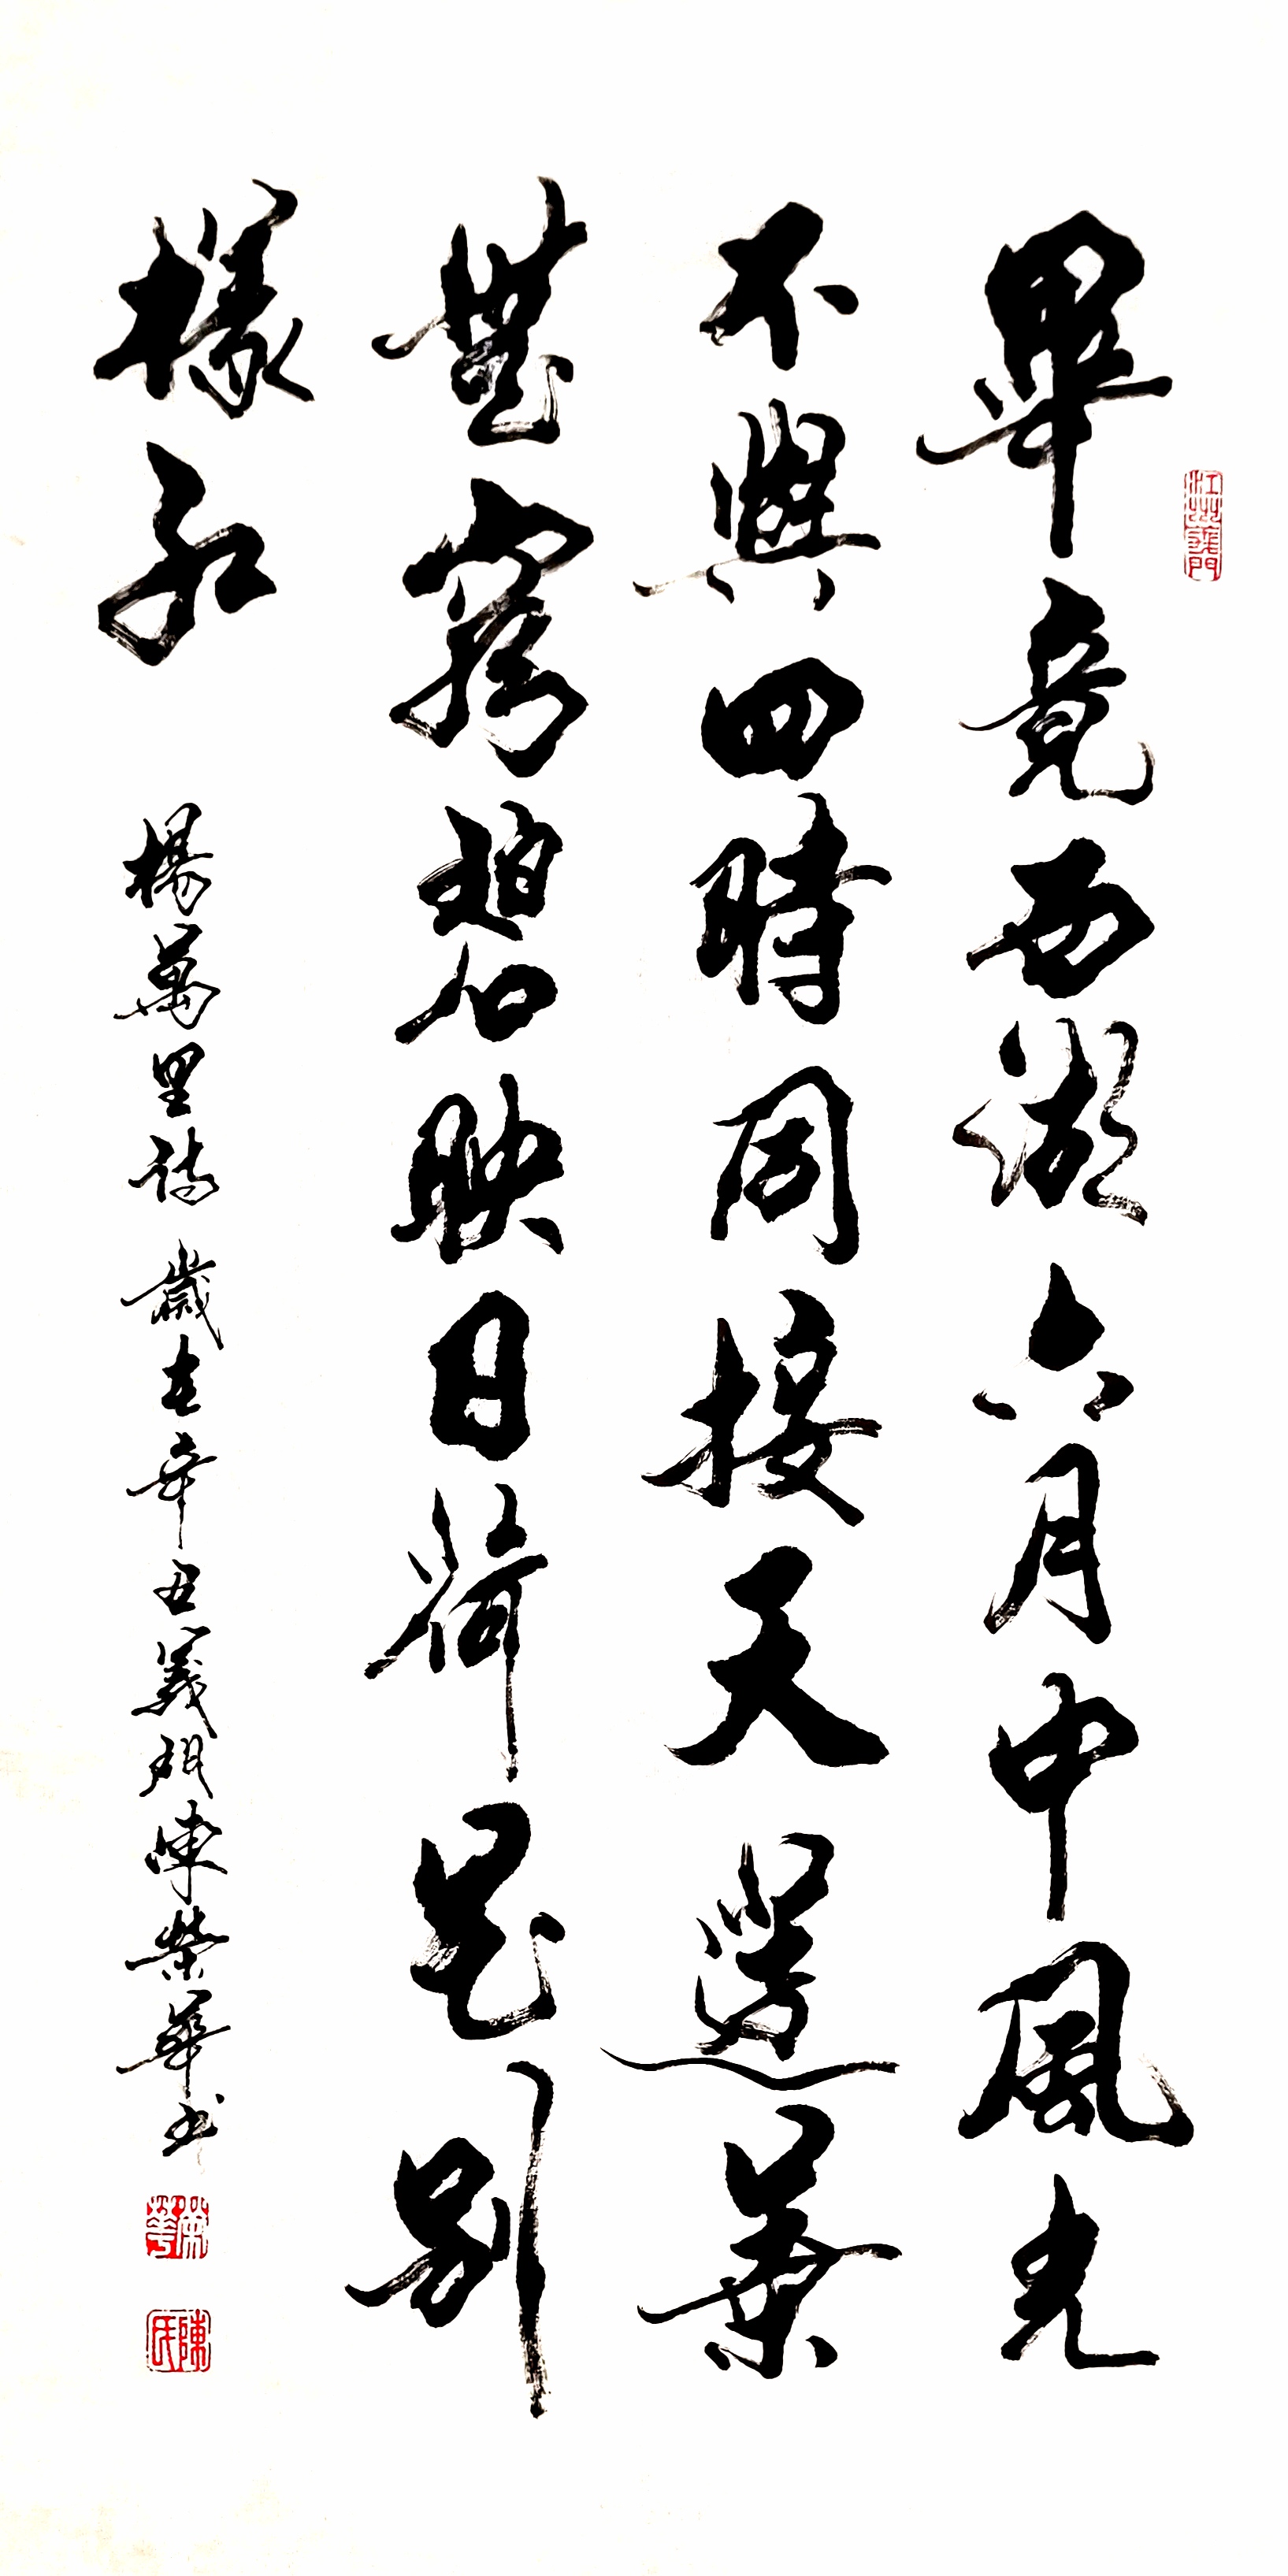 畢竟西湖六月中風光
不與四時同接天蓮葉
無窮碧映日荷花別
樣紅
楊萬里詩 歲在辛丑義門陳榮華書
榮華
陳氏